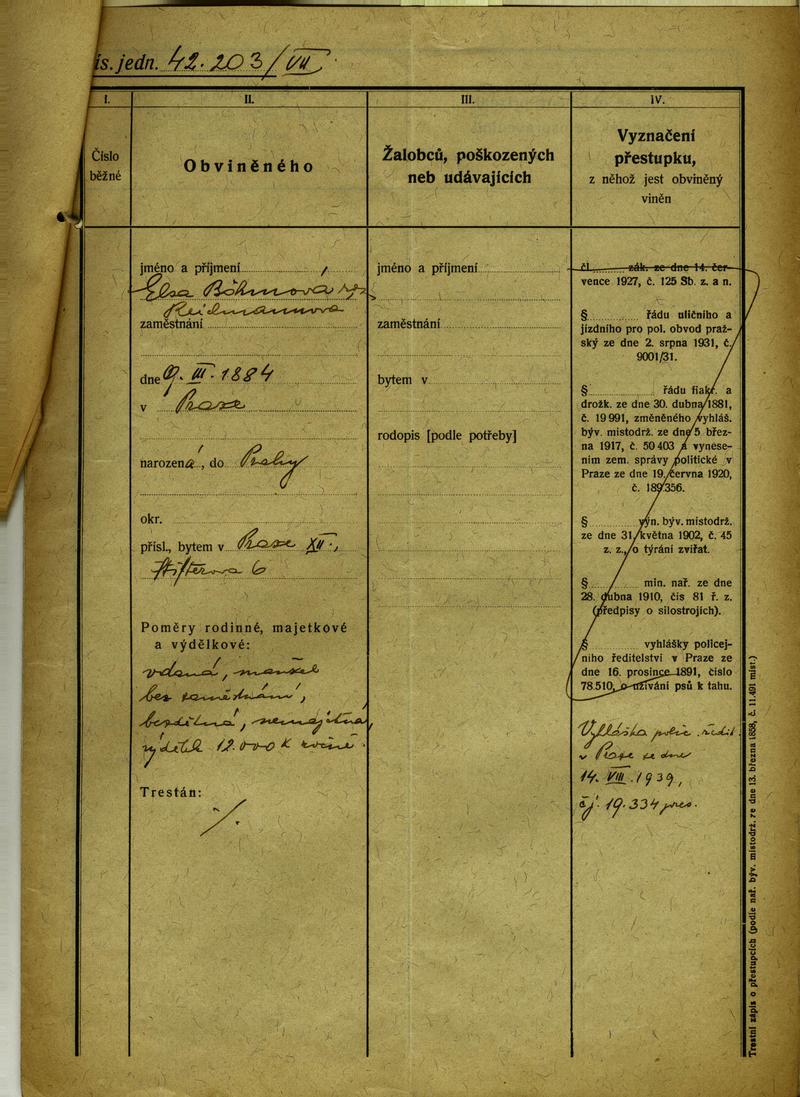 is. jedn. 42.203/VII
I.
II.
III.
IV.
Číslo
běžné
Obviněného
Žalobců, poškozených
neb udávajících
Vyznačení
přestupku,
z něhož jest obviněný
viněn
jméno a příjmení
zaměstnání
dne 9. III. 1884
v Praze
narozená, do Prahy
okr.
přísl., bytem v Praze XII.,
6
Poměry rodinné, majetkové
a výdělkové:
vdaná,
bez
bezdětná,
12.000 K
Trestán:
/.
jméno a příjmení
zaměstnání
bytem v
rodopis [podle potřeby]
čl. zák. ze dne 14. čer-
vence 1927, č. 125 Sb. z. a n.
§ řádu uličního a
jízdního pro pol. obvod praž-
ský ze dne 2. srpna 1931, č.
9001/31.
§ řádu fiakr. a
drožk. ze dne 30. dubna 1881,
č. 19 991, změněného vyhláš.
býv. mistodrž. ze dne 5 břez-
na 1917, č. 50 403 a vynese-
ním zem. správy politické v
Praze ze dne 19. června 1920,
č. 189356.
§ výn. býv. místodrž.
ze dne 31. května 1902, č. 45
z. z., o týrání zvířat.
§ min. nař. ze dne
28. dubna 1910, čís 81 ř. z.
(předpisy o silostrojích).
§ vyhlášky policej-
ního ředitelství v Praze ze
dne 16. prosince 1891, číslo
78.510, o užívání psů k tahu.
Vyhláška polic. ředit.
v Praze ze dne
14. VIII. 1939,
čj. 19.334 pres.
Trestní zápis o přestupcích (podle nař. býv. místodrž. ze dne 13. března 1858, č. 11.491 míst.)